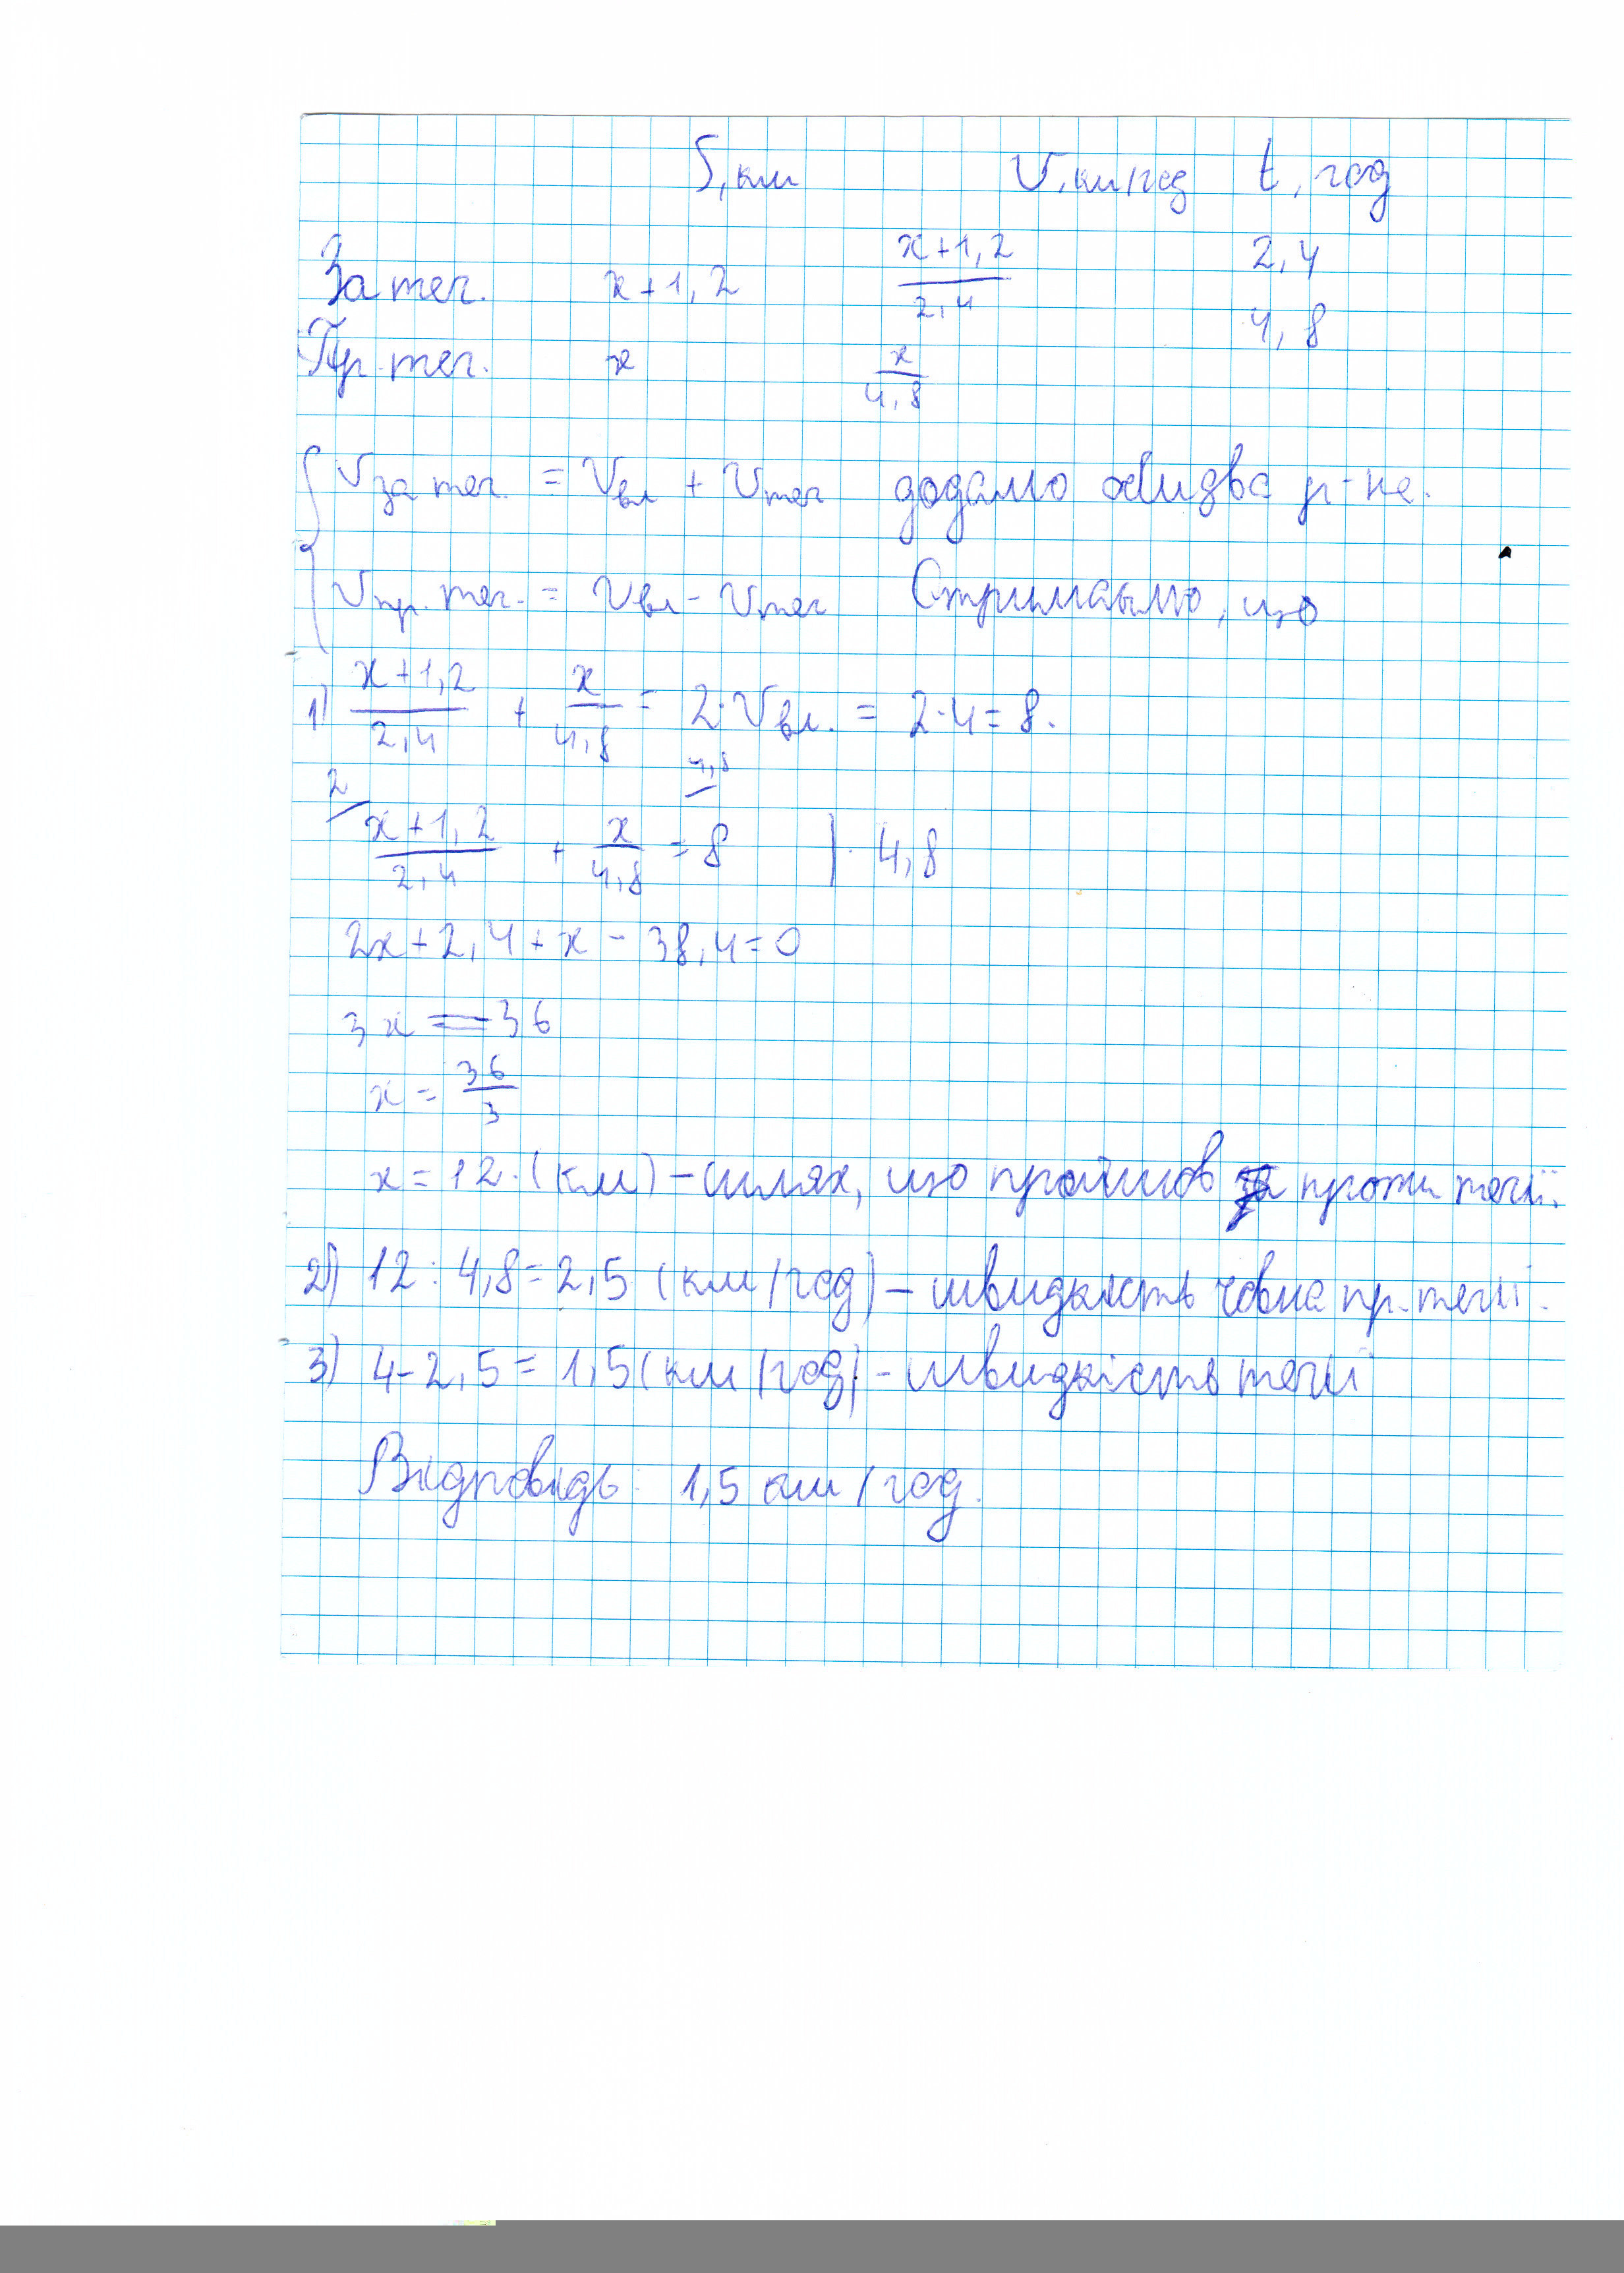 S, км V, км/год t, год
За теч. x+1,2 x+1,2/2,4 2,4
Пр. теч. x x/4,8 4,8
{ Vза теч. = Vвл + Vтеч додамо обидва р-не.
Vпр. теч. = Vвл - Vтеч Отримаємо, що
1) x+1,2/2,4 + x/4,8 = 2·Vвл. = 2·4=8.
2/ x+1,2/2,4 + x/4,8 = 4,8/ 8 |· 4,8
2x+2,4+x-38,4=0
3x=36
x = 36/3
x=12 (км) - шлях, що пройшов проти течії.
2) 12 : 4,8=2,5 (км/год) - швидкість човна пр. течії.
3) 4-2,5=1,5 (км/год) - швидкість течії
Відповідь: 1,5 км/год.